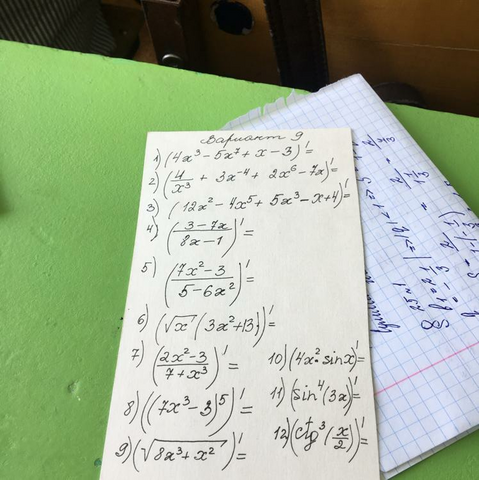 Вариант 9
1) (4x³ - 5x⁷ + x - 3)' =
2) (4/x³ + 3x⁻⁴ + 2x⁶ - 7x)' =
3) (12x² - 4x⁵ + 5x³ - x + 4)' =
4) ((3 - 7x)/(8x - 1))' =
5) ((7x² - 3)/(5 - 6x²))' =
6) (√x (3x² + 13))' =
7) ((2x² - 3)/(7 + x³))' =
8) ((7x³ - 3)⁵)' =
9) (√(8x³ + x²))' =
10) (4x² · sin x)' =
11) (sin⁴(3x))' =
12) (ctg³(x/2))' =